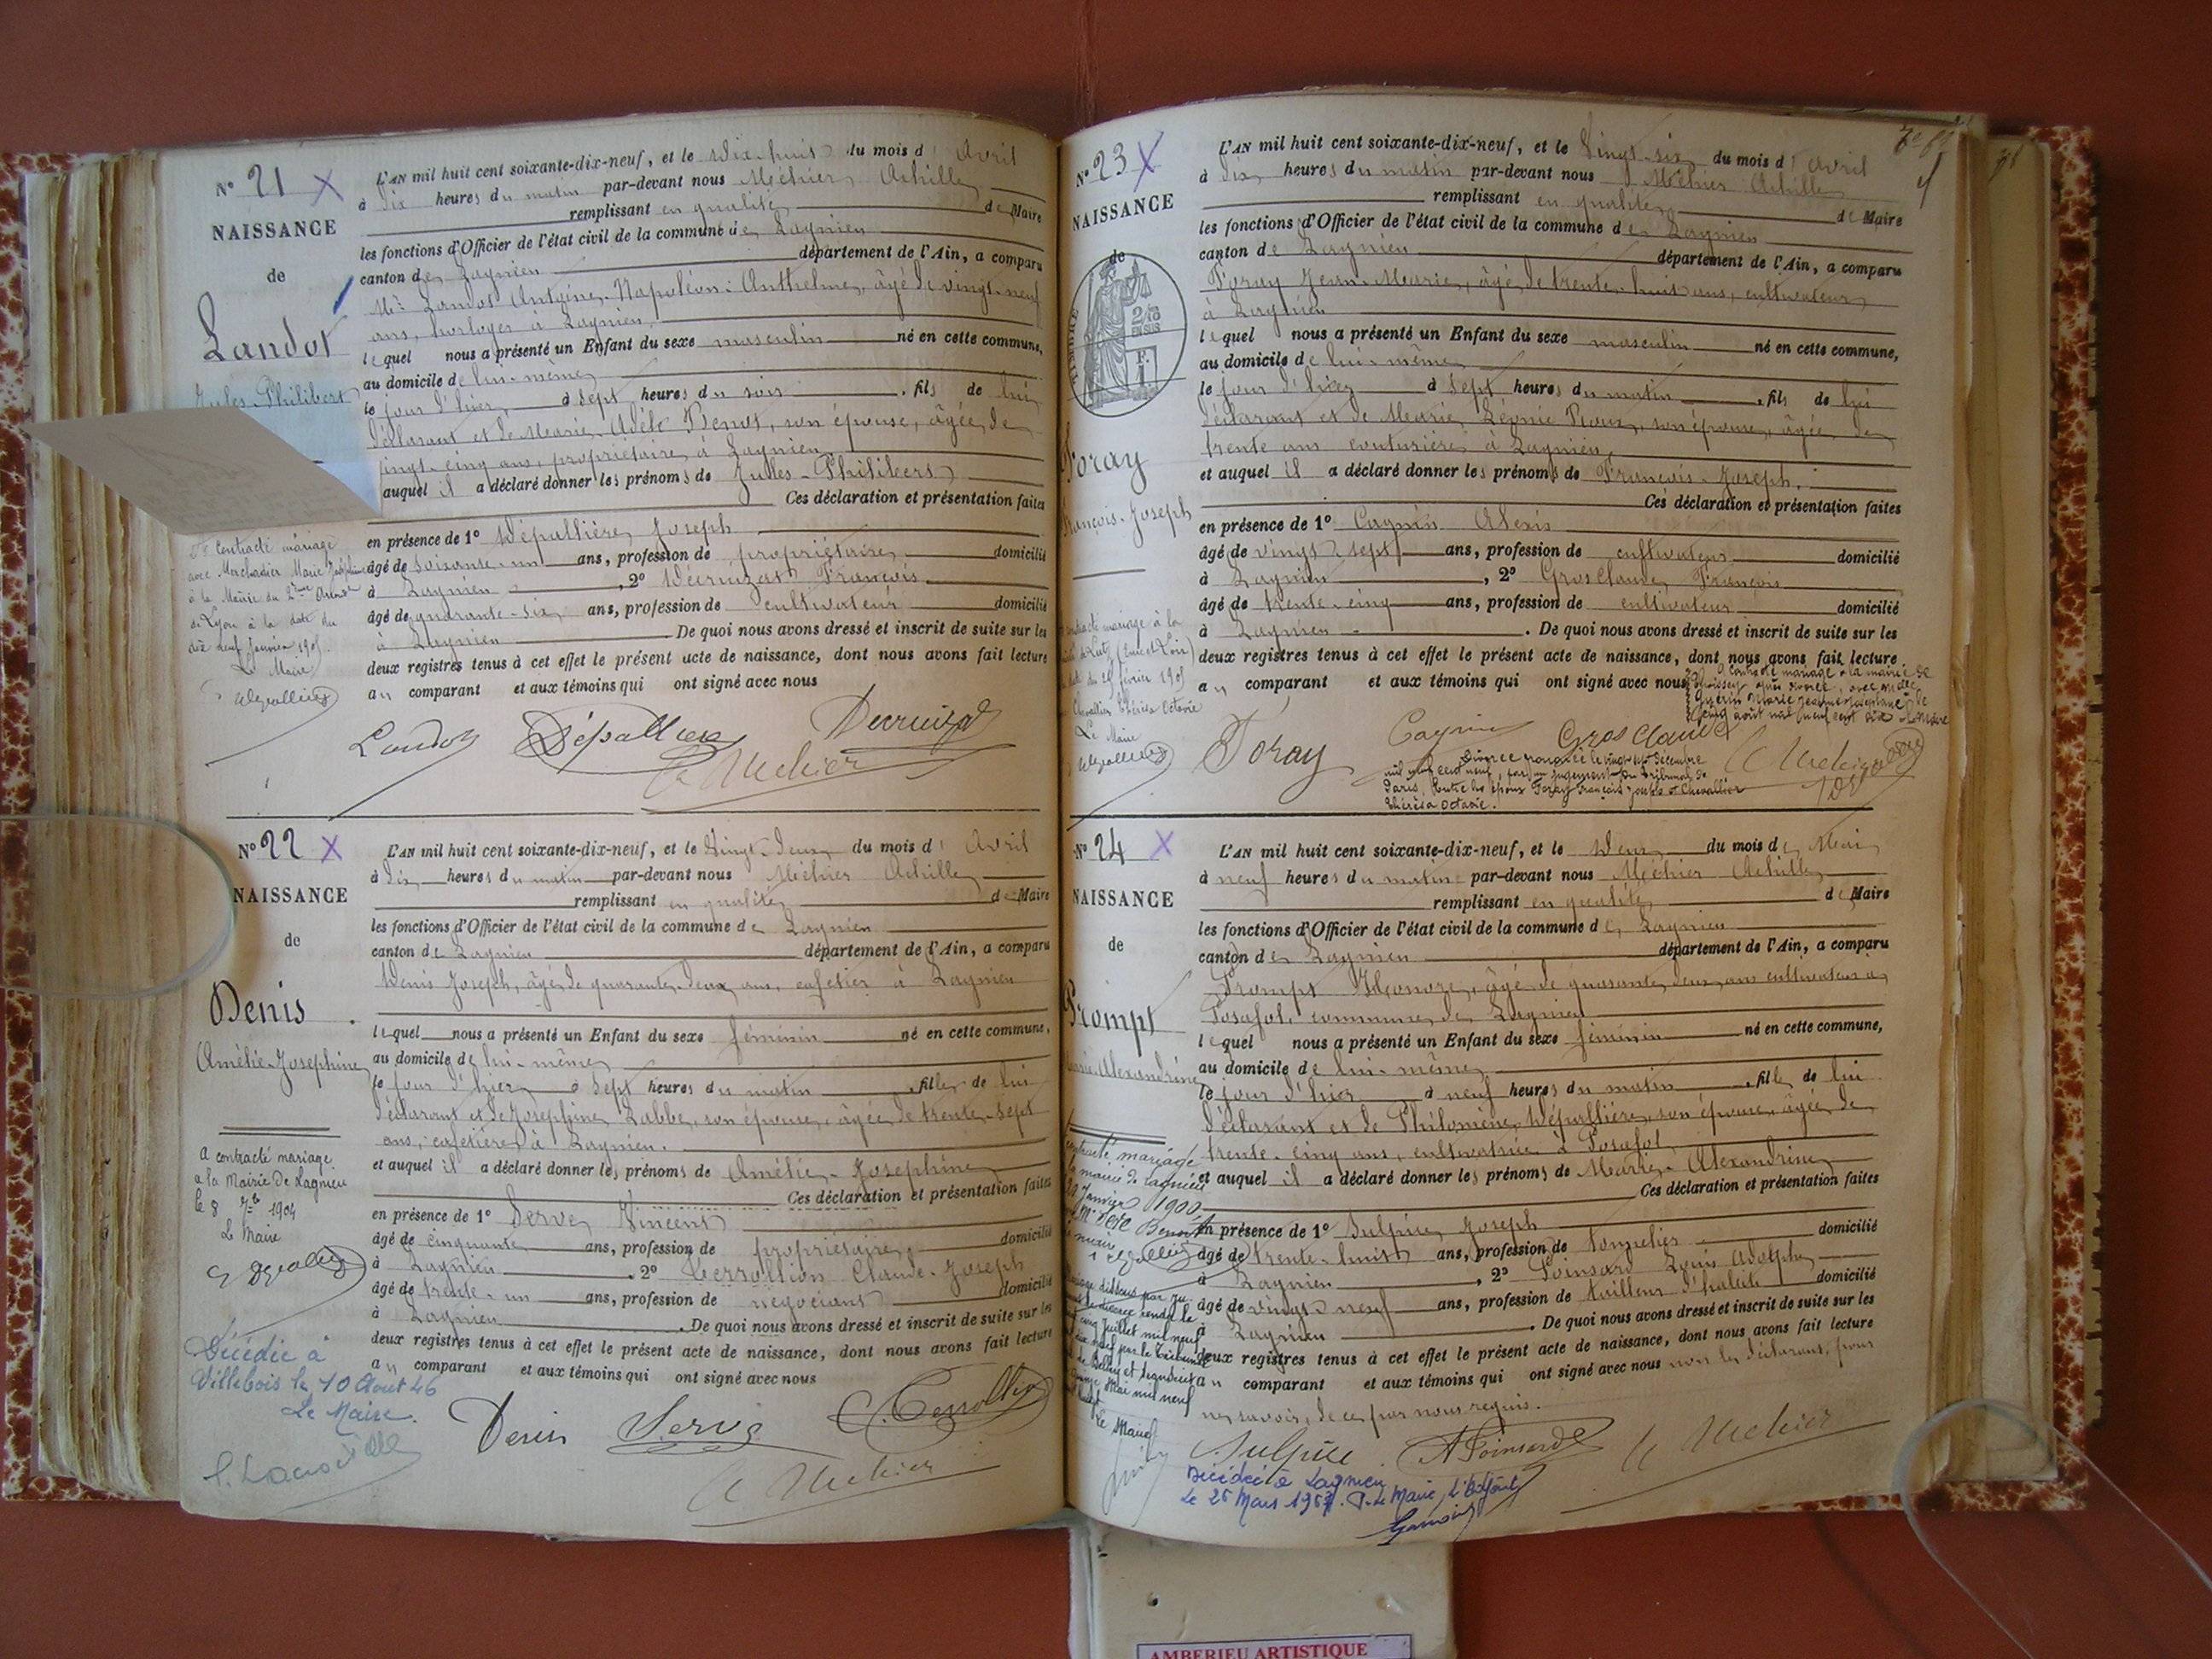 N° 21 X
NAISSANCE
de
Landot
Jules-Philibert
L'AN mil huit cent soixante-dix-neuf, et le dix-huit du mois d' Avril
à dix heures du matin par-devant nous Méhier Achille
remplissant en qualité de Maire
les fonctions d'Officier de l'état civil de la commune de Lagnieu
canton de Lagnieu département de l'Ain, a comparu
Mr Landot Antoine-Napoléon-Anthelme, âgé de vingt-neuf
ans, horloger à Lagnieu
lequel nous a présenté un Enfant du sexe masculin né en cette commune,
au domicile de lui-même
le jour d'hier, à sept heures du soir, fils de lui
déclarant et de Marie Adèle Benot, son épouse, âgée de
vingt-cinq ans, propriétaire à Lagnieu
auquel il a déclaré donner les prénoms de Jules-Philibert
Ces déclaration et présentation faites
en présence de 1° Dépallière Joseph
âgé de soixante-un ans, profession de propriétaire domicilié
à Lagnieu, 2° Décruizat François
âgé de quarante-six ans, profession de cultivateur domicilié
à Lagnieu. De quoi nous avons dressé et inscrit de suite sur les
deux registres tenus à cet effet le présent acte de naissance, dont nous avons fait lecture
au comparant et aux témoins qui ont signé avec nous
contracté mariage
avec Marie Joséphine
à la Mairie du 2ème Arrondt
de Lyon à la date du
dix neuf Janvier 190
Le Maire
Landot Dépallière Decruizat
A Méhier
N° 22 X
NAISSANCE
de
Denis
Amélie-Joséphine
L'AN mil huit cent soixante-dix-neuf, et le Vingt-deux du mois d' Avril
à dix heures du matin par-devant nous Méhier Achille
remplissant en qualité de Maire
les fonctions d'Officier de l'état civil de la commune de Lagnieu
canton de Lagnieu département de l'Ain, a comparu
Denis Joseph, âgé de quarante-deux ans, cafetier à Lagnieu
lequel nous a présenté un Enfant du sexe féminin né en cette commune,
au domicile de lui-même
le jour d'hier à sept heures du matin, fille de lui
déclarant et de Joséphine Labbe, son épouse, âgée de trente-sept
ans, cafetière à Lagnieu.
et auquel il a déclaré donner les prénoms de Amélie-Joséphine
Ces déclaration et présentation faites
en présence de 1° Serve Vincent
âgé de cinquante ans, profession de propriétaire domicilié
à Lagnieu, 2° Claude-Joseph
âgé de trente-un ans, profession de négociant domicilié
à Lagnieu. De quoi nous avons dressé et inscrit de suite sur les
deux registres tenus à cet effet le présent acte de naissance, dont nous avons fait lecture
au comparant et aux témoins qui ont signé avec nous
A contracté mariage
à la Mairie de Lagnieu
le 8 7bre 1904
Le Maire
Décédée à
Villebois le 10 Août 46
Le Maire.
Denis Serve
A Méhier
N° 23 X
NAISSANCE
de
TIMBRE
2/10
EN SUS
F.
1
Foray
François-Joseph
L'AN mil huit cent soixante-dix-neuf, et le Vingt-six du mois d' Avril
à dix heures du matin par-devant nous Méhier Achille
remplissant en qualité de Maire
les fonctions d'Officier de l'état civil de la commune de Lagnieu
canton de Lagnieu département de l'Ain, a comparu
Foray Jean-Marie, âgé de trente-huit ans, cultivateur
à Lagnieu
lequel nous a présenté un Enfant du sexe masculin né en cette commune,
au domicile de lui-même
le jour d'hier à sept heures du matin, fils de lui
déclarant et de Marie Léonie Roux, son épouse, âgée de
trente ans couturière à Lagnieu
et auquel il a déclaré donner les prénoms de François-Joseph.
Ces déclaration et présentation faites
en présence de 1° Cagnin Alexis
âgé de vingt-sept ans, profession de cultivateur domicilié
à Lagnieu, 2° Grosclaude François
âgé de trente-cinq ans, profession de cultivateur domicilié
à Lagnieu. De quoi nous avons dressé et inscrit de suite sur les
deux registres tenus à cet effet le présent acte de naissance, dont nous avons fait lecture
au comparant et aux témoins qui ont signé avec nous
contracté mariage à la
(Eure et Loir)
février 190
Chevallier Thérésa Octavie
Le Maire
contracté mariage à la mairie de
après divorce, avec
Marie Jeanne Joséphine le
août mil neuf cent dix Le Maire
Foray Cagnin Gros Claude
A Méhier
Divorce prononcé le vingt Décembre
mil neuf cent neuf, par un jugement du Tribunal de
Paris, Entre les époux Foray François Joseph et Chevallier
Thérésa Octavie.
N° 24 X
NAISSANCE
de
Prompt
Marie-Alexandrine
L'AN mil huit cent soixante-dix-neuf, et le deux du mois de Mai
à neuf heures du matin par-devant nous Méhier Achille
remplissant en qualité de Maire
les fonctions d'Officier de l'état civil de la commune de Lagnieu
canton de Lagnieu département de l'Ain, a comparu
Prompt Eléonore, âgé de quarante-deux ans cultivateur à
Posafol, commune de Lagnieu
lequel nous a présenté un Enfant du sexe féminin né en cette commune,
au domicile de lui-même
le jour d'hier à neuf heures du matin, fille de lui
déclarant et de Philomène Dépallière, son épouse, âgée de
trente-cinq ans, cultivatrice à Posafol
et auquel il a déclaré donner les prénoms de Marie-Alexandrine
Ces déclaration et présentation faites
en présence de 1° Sulpice Joseph
âgé de trente-huit ans, profession de tonnelier domicilié
à Lagnieu, 2° Poinsard Louis Adolphe
âgé de vingt-neuf ans, profession de tailleur d'habits domicilié
à Lagnieu. De quoi nous avons dressé et inscrit de suite sur les
deux registres tenus à cet effet le présent acte de naissance, dont nous avons fait lecture
au comparant et aux témoins qui ont signé avec nous non le déclarant, pour
ne savoir, de ce par nous requis.
contracté mariage
mairie de Lagnieu
Janvier 1900
Benoit
dissous par
divorce rendu le
cinq Juillet mil neuf
par le Tribunal
de Belley et
Mai mil neuf
Le Maire
Sulpice A Poinsard A Méhier
Décédée à Lagnieu
Le 25 Mars 1967. P. le Maire, L'Adjoint
AMBERIEU ARTISTIQUE